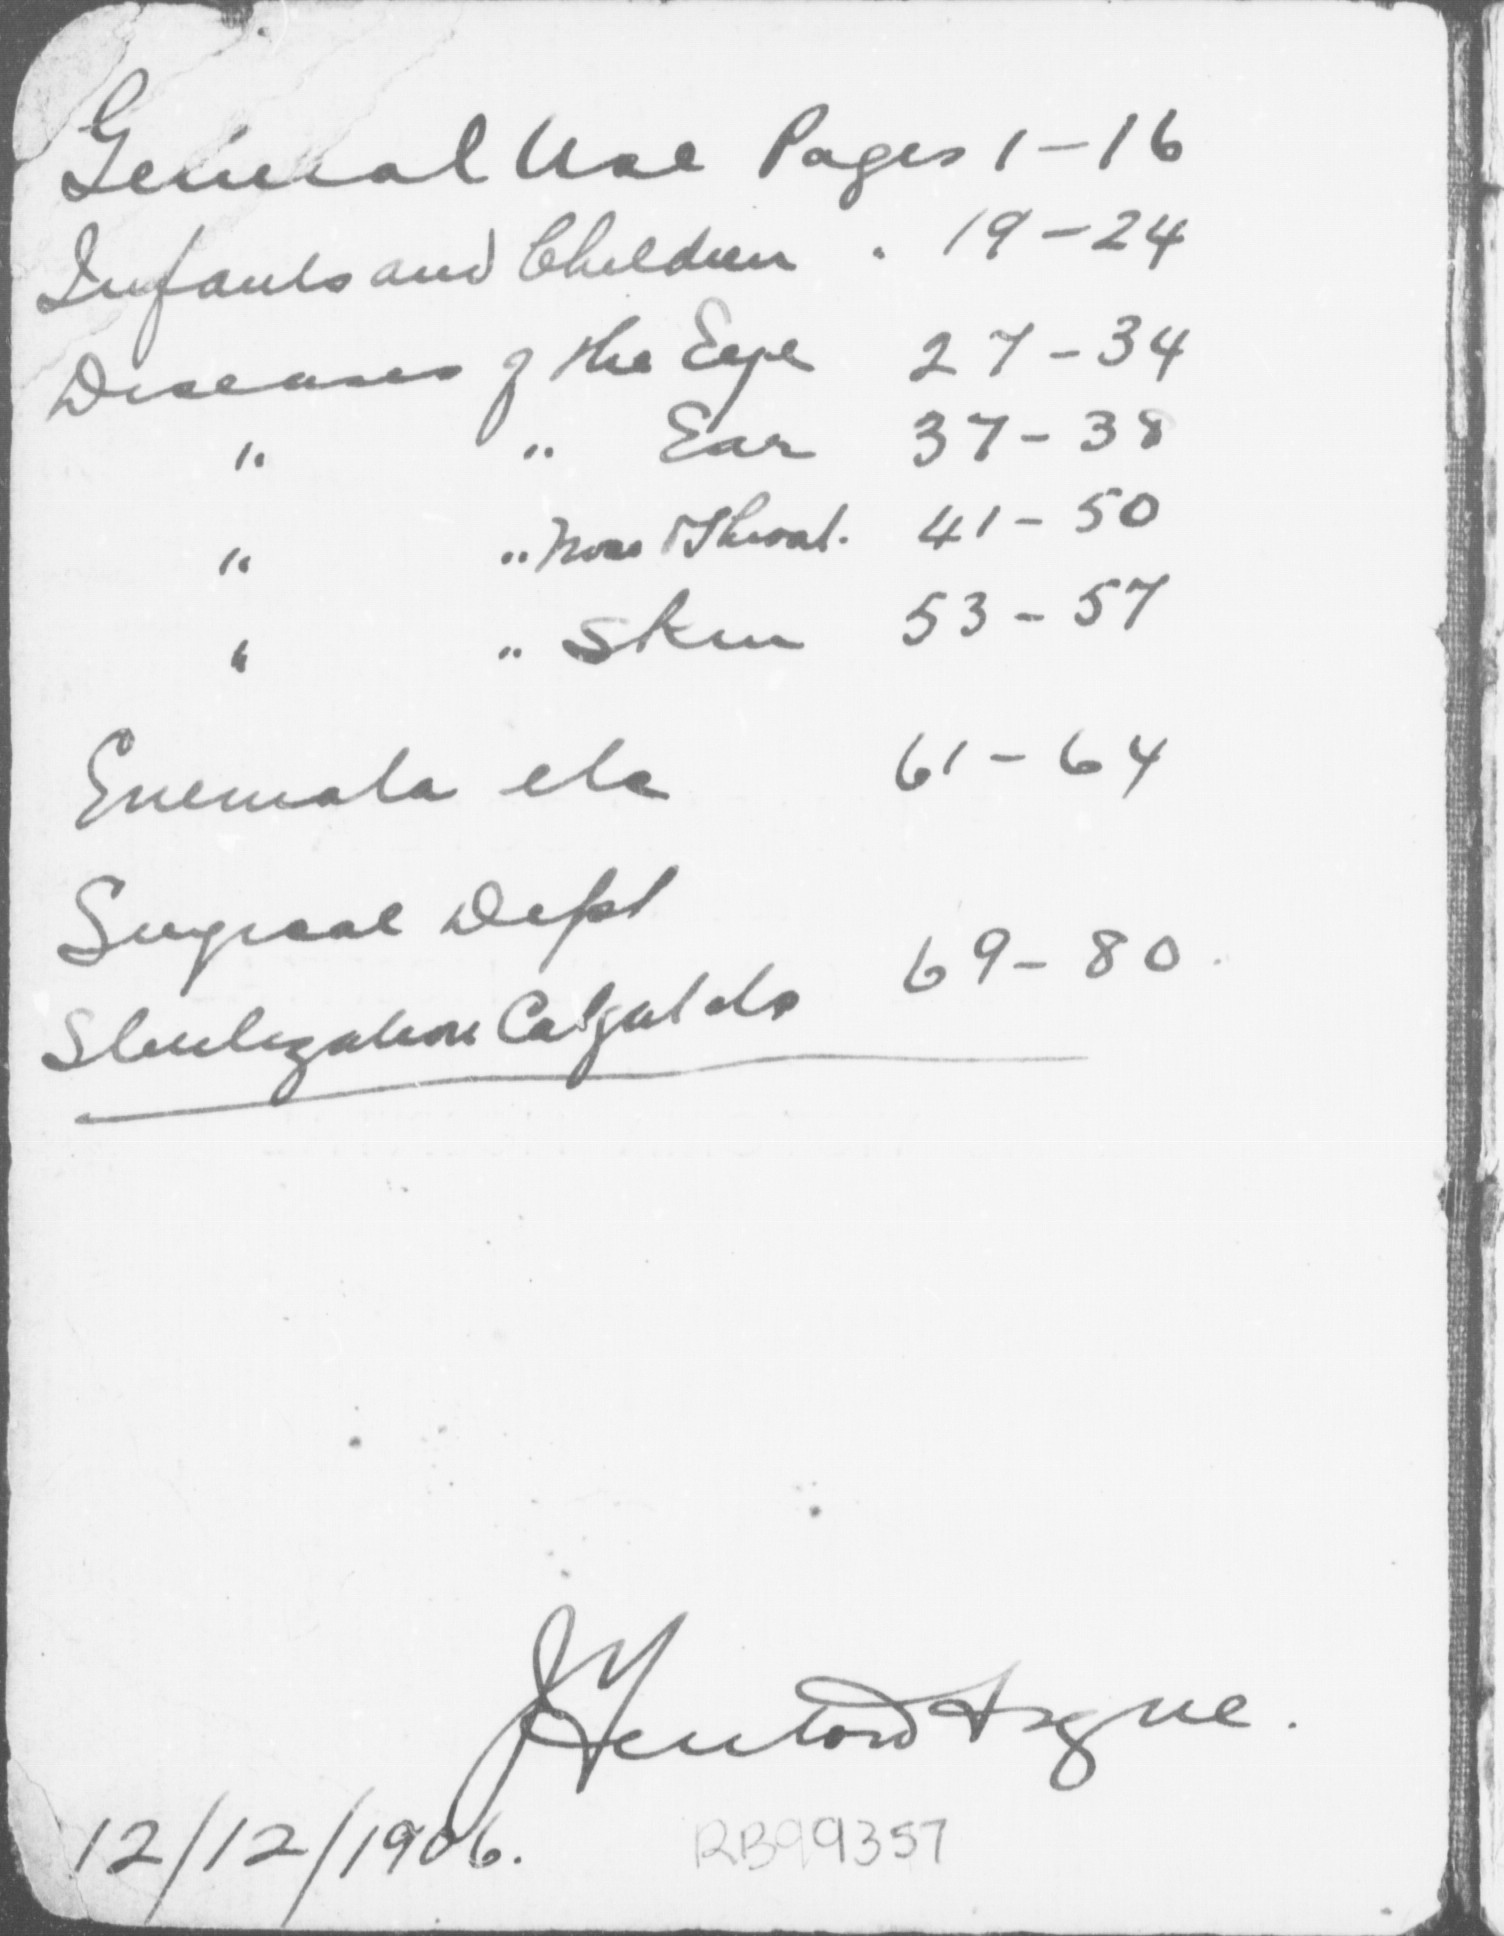 General Use Pages 1-16
Infants and Children . 19-24
Diseases of the Eye 27-34
" " Ear 37-38
" " Nose & Throat. 41-50
" " Skin 53-57
Enemata etc 61-64
Surgical Dept
69-80.
Sterilization Catgut etc
12/12/1906.
RB99357